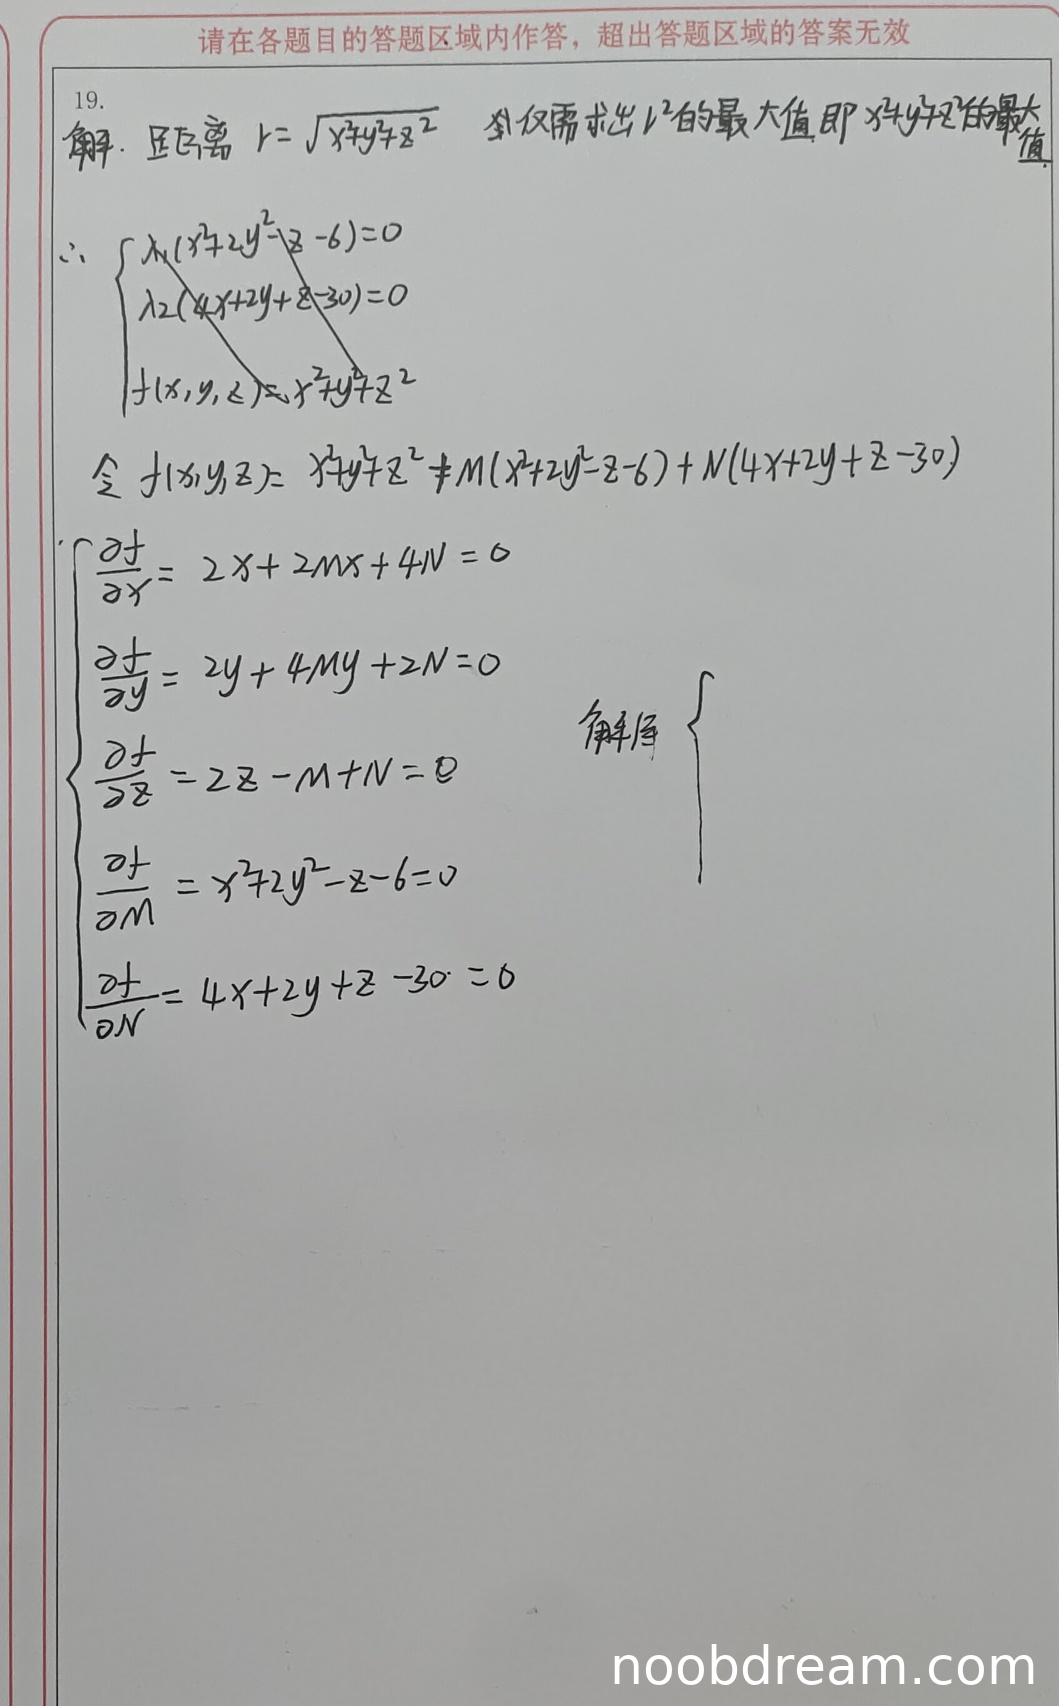 请在各题目的答题区域内作答，超出答题区域的答案无效
19.
解. 距离 r=√(x²+y²+z²) 仅需求出r²的最大值即x²+y²+z²的最大值
∴ { λ₁(x²+2y²-z-6)=0
λ2(4x+2y+z-30)=0
f(x,y,z)=x²+y²+z²
令 f(x,y,z)= x²+y²+z²+M(x²+2y²-z-6)+N(4x+2y+z-30)
{ ∂f/∂x = 2x+2Mx+4N=0
∂f/∂y = 2y+4My+2N=0
解得 {
∂f/∂z = 2z-M+N=0
∂f/∂M = x²+2y²-z-6=0
∂f/∂N = 4x+2y+z-30=0
noobdream.com